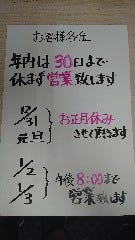 お客様各位
年内は30日まで
休まず営業致します
12/31
元旦
お正月休み
させて頂きます
1/2
1/3
午後8:00まで
営業致します